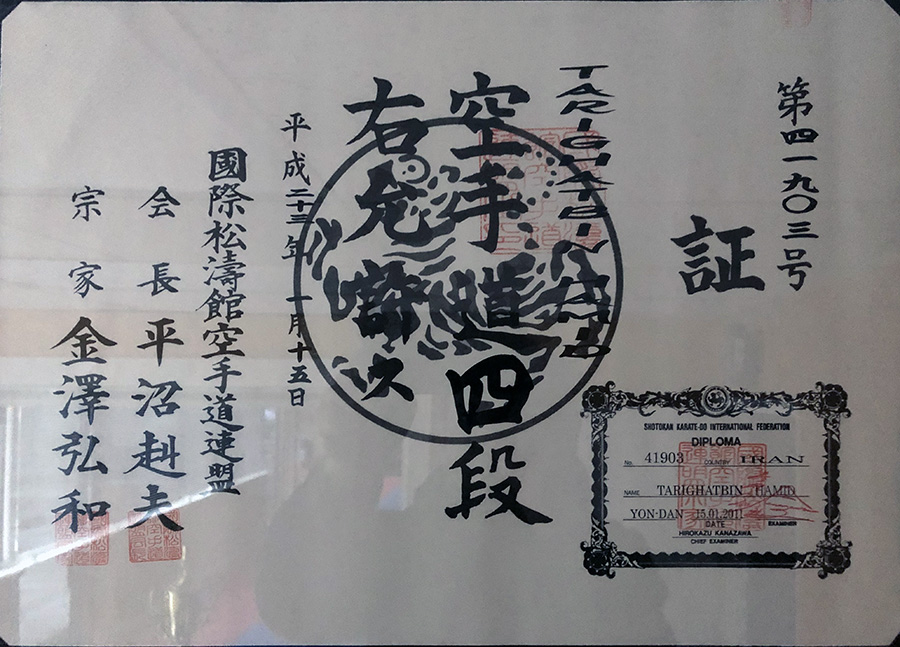 第四一九〇三号
証
TARIGHATBIN HAMID
空手道四段
右允許ス
平成二十三年 一月十五日
國際松濤館空手道連盟
会長 平沼赳夫
宗家 金澤弘和
SHOTOKAN KARATE-DO INTERNATIONAL FEDERATION
DIPLOMA
No. 41903 COUNTRY IRAN
NAME TARIGHATBIN HAMID
YON-DAN 15.01.2011
DATE EXAMINER
HIROKAZU KANAZAWA
CHIEF EXAMINER